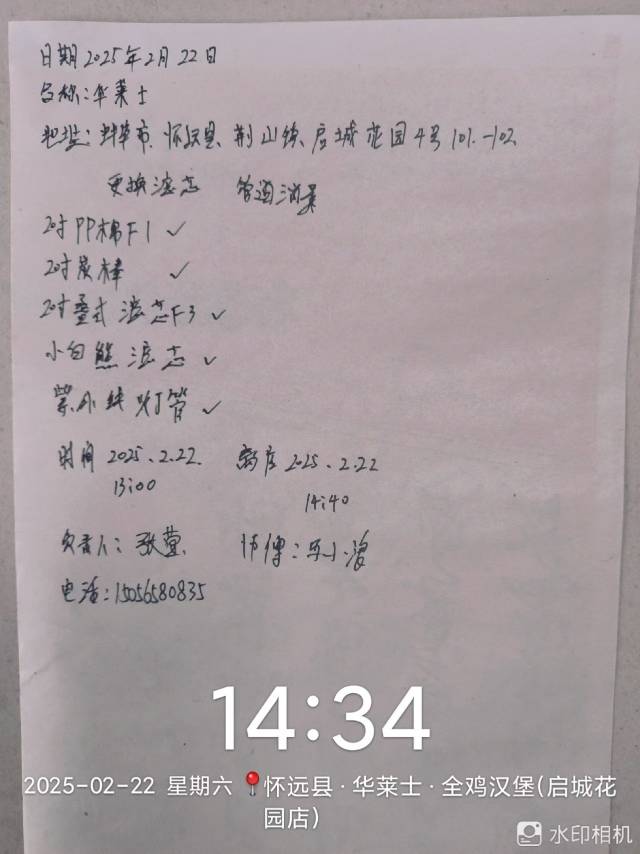 日期2025年2月22日
名称:华莱士
地址:蚌埠市.怀远县.荆山镇.启城花园4号101.-102
更换滤芯 管道消毒
20寸PP棉F1 ✓
20寸炭棒 ✓
20寸叠式滤芯F3 ✓
小白熊滤芯 ✓
紫外线灯管 ✓
时间2025.2.22. 离店2025.2.22
13:00 14:40
负责人:张莹 师傅:
电话:15056580835
14:34
2025-02-22 星期六 怀远县·华莱士·全鸡汉堡(启城花
园店)
水印相机